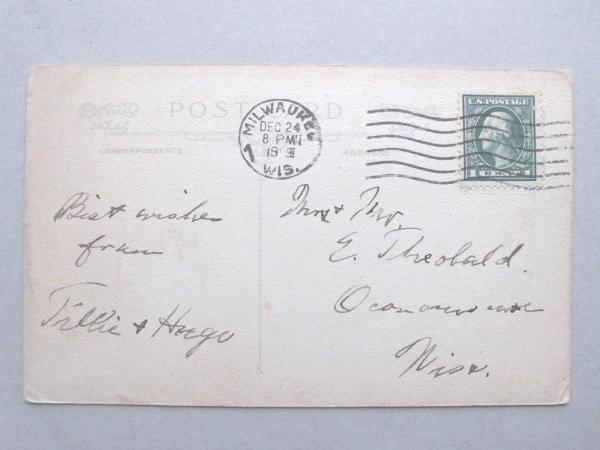 POST CARD
CORRESPONDENCE
ADDRESS
MILWAUKEE
DEC 24
8 PM
WIS.
U.S. POSTAGE
1
Best wishes
from
Tillie & Hugo
Mr & Mrs.
E. Theobald.
Oconomowoc
Wisc.